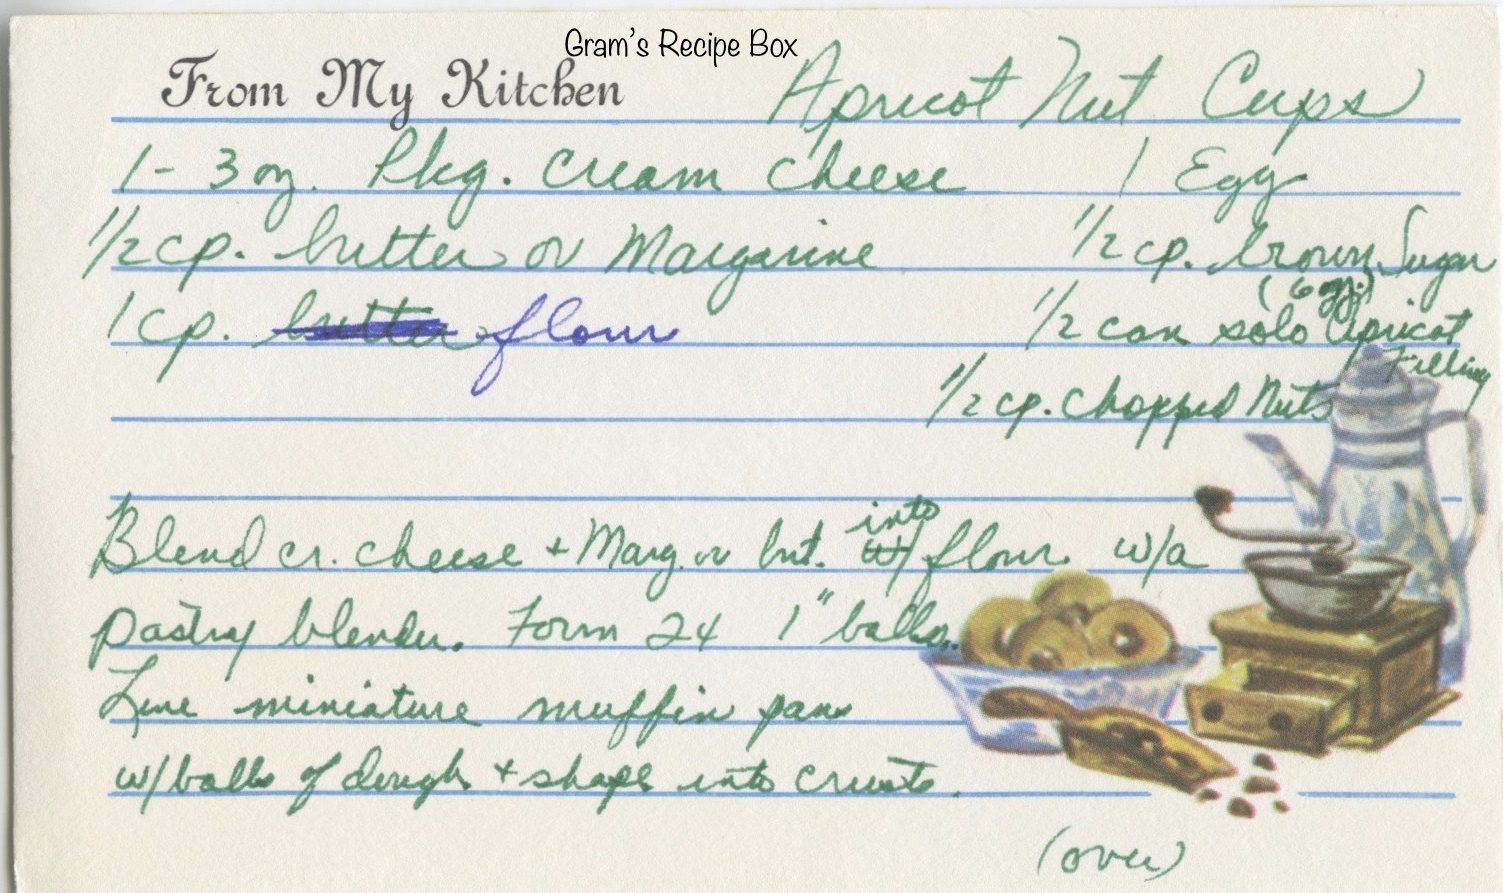 Gram's Recipe Box
From My Kitchen Apricot Nut Cups
1 - 3 oz. Pkg. Cream Cheese 1 Egg
1/2 cp. butter or Margarine 1/2 cp. brown Sugar
(6 oz.)
1 cp. butter flour 1/2 can solo Apricot
Filling
1/2 cp. Chopped Nuts
into
Blend cr. cheese + Marg. or but. w/ flour w/a
pastry blender. Form 24 1" balls.
Line miniature muffin pans
w/balls of dough + shape into crusts.
(over)